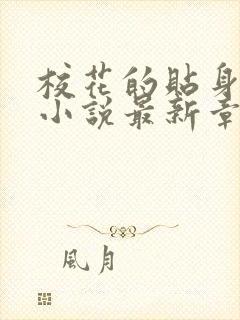 校花的貼身
小說最新章
風月